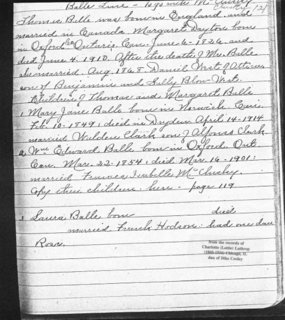 Balls Line - to go with Mc
121
Thomas Balls was born in England and
married in Canada Margaret Dayton born
in Oxford Co Ontario Can. June 6-1826 and
died June 4, 1910. After the death of Mr. Balls
she married Aug. 1868 Daniel West of
son of Benjamin and Sally West.
Children of Thomas and Margaret Balls
1. Mary Jane Balls born in Norwich Can.
Feb. 10-1849; died in Dryden April 14-1914
married Wilden Clark son of Alfonso Clark
2. Wm Edward Balls born in Oxford Ont
Can. Mar. 22-1854; died Mar. 16-1901;
married Frances Isabelle
Copy three children here - page 119
3. Laura Balls born died
married Frank Hodson: had one dau
Rosa.
from the records of
Charlotte (Leslie) Lathrop
Chicago, IL
dau of